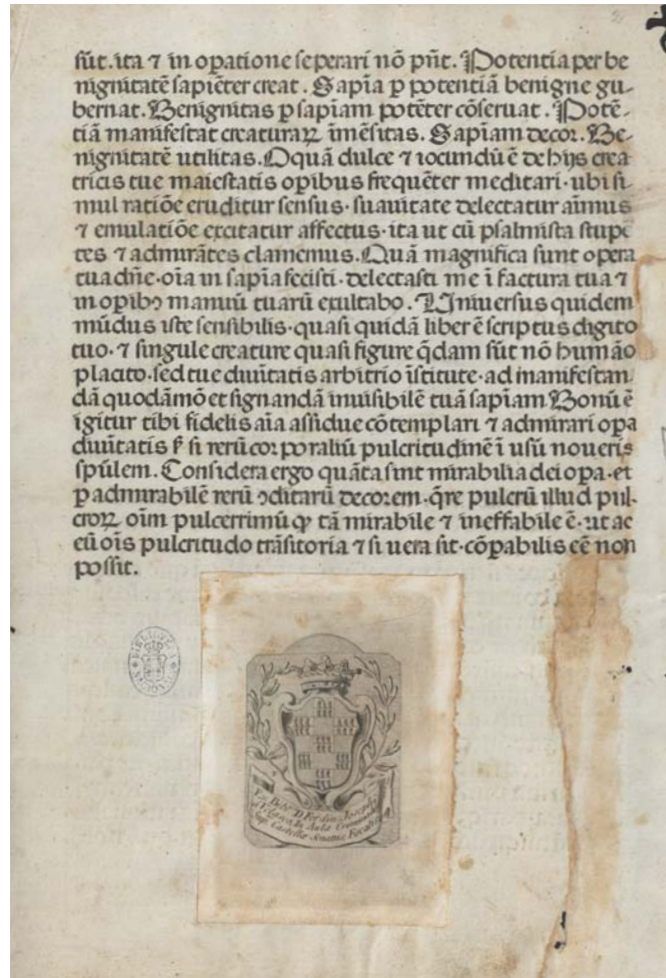 sūt. ita ⁊ in oꝑatione seperari nō pn̄t. Potentia per be
nignitatē sapiēter creat. Sapīa ꝑ potentiā benigne gu-
bernat. Benignitas ꝑ sapīam potēter cōseruat. Potē-
tiā manifestat creaturaꝝ īmēsitas. Sapīam decor. Be-
nignitatē utilitas. O quā dulce ⁊ iocundū ē de hijs crea
tricis tue maiestatis oꝑibus frequēter meditari· ubi si
mul ratiōe eruditur sensus· suauitate delectatur aīmus
⁊ emulatiōe excitatur affectus· ita ut cū psalmista stupē
tes ⁊ admirātes clamemus. Quā magnifica sunt opera
tua dn̄e· oīa in sapīa fecisti· delectasti me ī factura tua ⁊
in oꝑibꝰ manuū tuarū exultabo. Uniuersus quidem
mūdus iste sensibilis· quasi quidā liber ē scriptus digito
tuo· ⁊ singule creature quasi figure q̄dam sūt nō humāo
placito· sed tue diuītatis arbitrio īstitute· ad manifestan
dā quodāmō et signandā inuisibilē tuā sapīam Bonū ē
igitur tibi fidelis aīa assidue cōtemplari ⁊ admirari oꝑa
diuītatis si rerū corporaliū pulcritudinē ī usū noueris
spūlem. Considera ergo quāta sint mirabilia dei oꝑa· et
ꝑ admirabilē rerū ꝯditarū decorem· q̄re pulcrū illud pul-
croꝝ oīm pulcerrimū qꝫ tā mirabile ⁊ ineffabile ē· ut ac
eū oīs pulcritudo trāsitoria ⁊ si uera sit· cōꝑabilis eē non
possit.
Ex Biblio. D. Ferdin. Josephi
a Velasco. In Aula Criminali
Sup. Castellæ Senatus Fiscalis